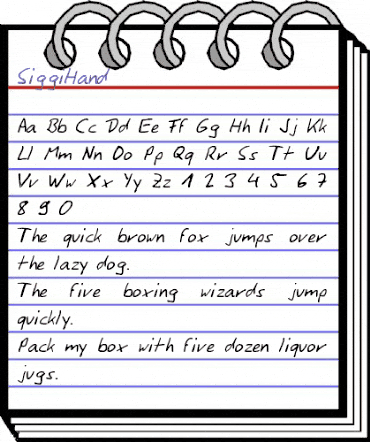 SiggiHand
Aa Bb Cc Dd Ee Ff Gg Hh Ii Jj Kk
Ll Mm Nn Oo Pp Qq Rr Ss Tt Uu
Vv Ww Xx Yy Zz 1 2 3 4 5 6 7
8 9 0
The quick brown fox jumps over
the lazy dog.
The five boxing wizards jump
quickly.
Pack my box with five dozen liquor
jugs.